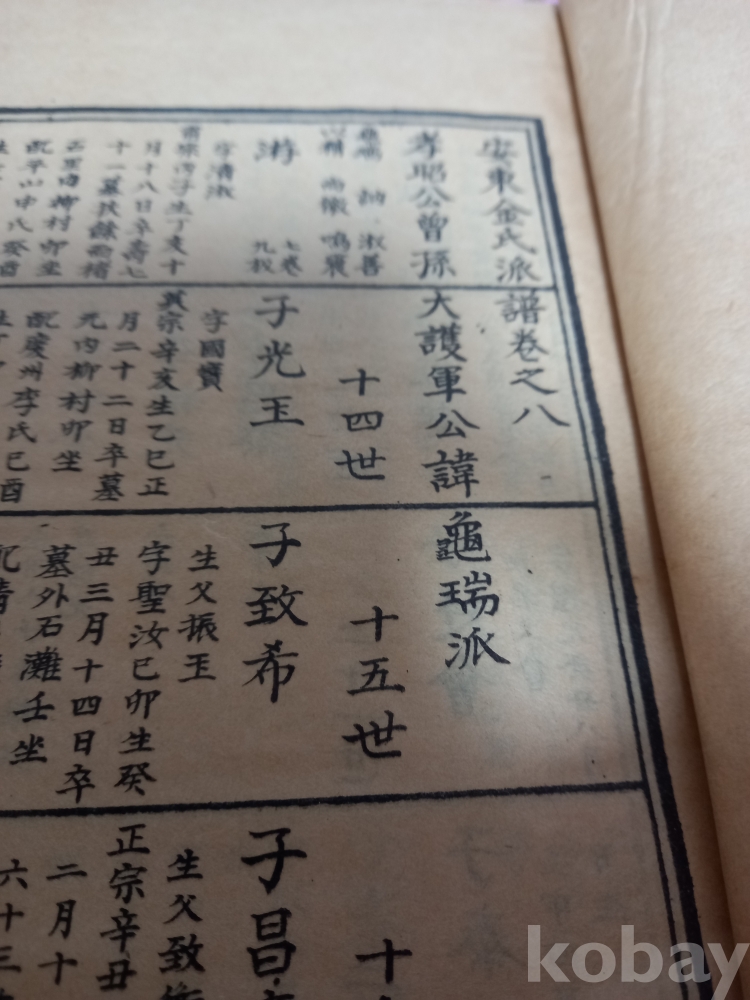 安東金氏派譜卷之八
孝昭公曾孫大護軍公諱龜瑞派
龜瑞 紬 淑善
尚儆 鳴襄
游
七卷
九板
字清淑
丙子生丁亥十
月十八日卒壽七
十一墓扶餘
內柳村卯坐
配平山申氏癸酉
十四世
子光玉
字國寶
英宗辛亥生乙巳正
月二十二日卒墓
元內柳村卯坐
配慶州李氏己酉
十五世
子致希
生父振玉
字聖汝己卯生癸
丑三月十四日卒
墓外石灘壬坐
配
十
子昌
生父致
正宗辛丑
二月十
六十三
kobay